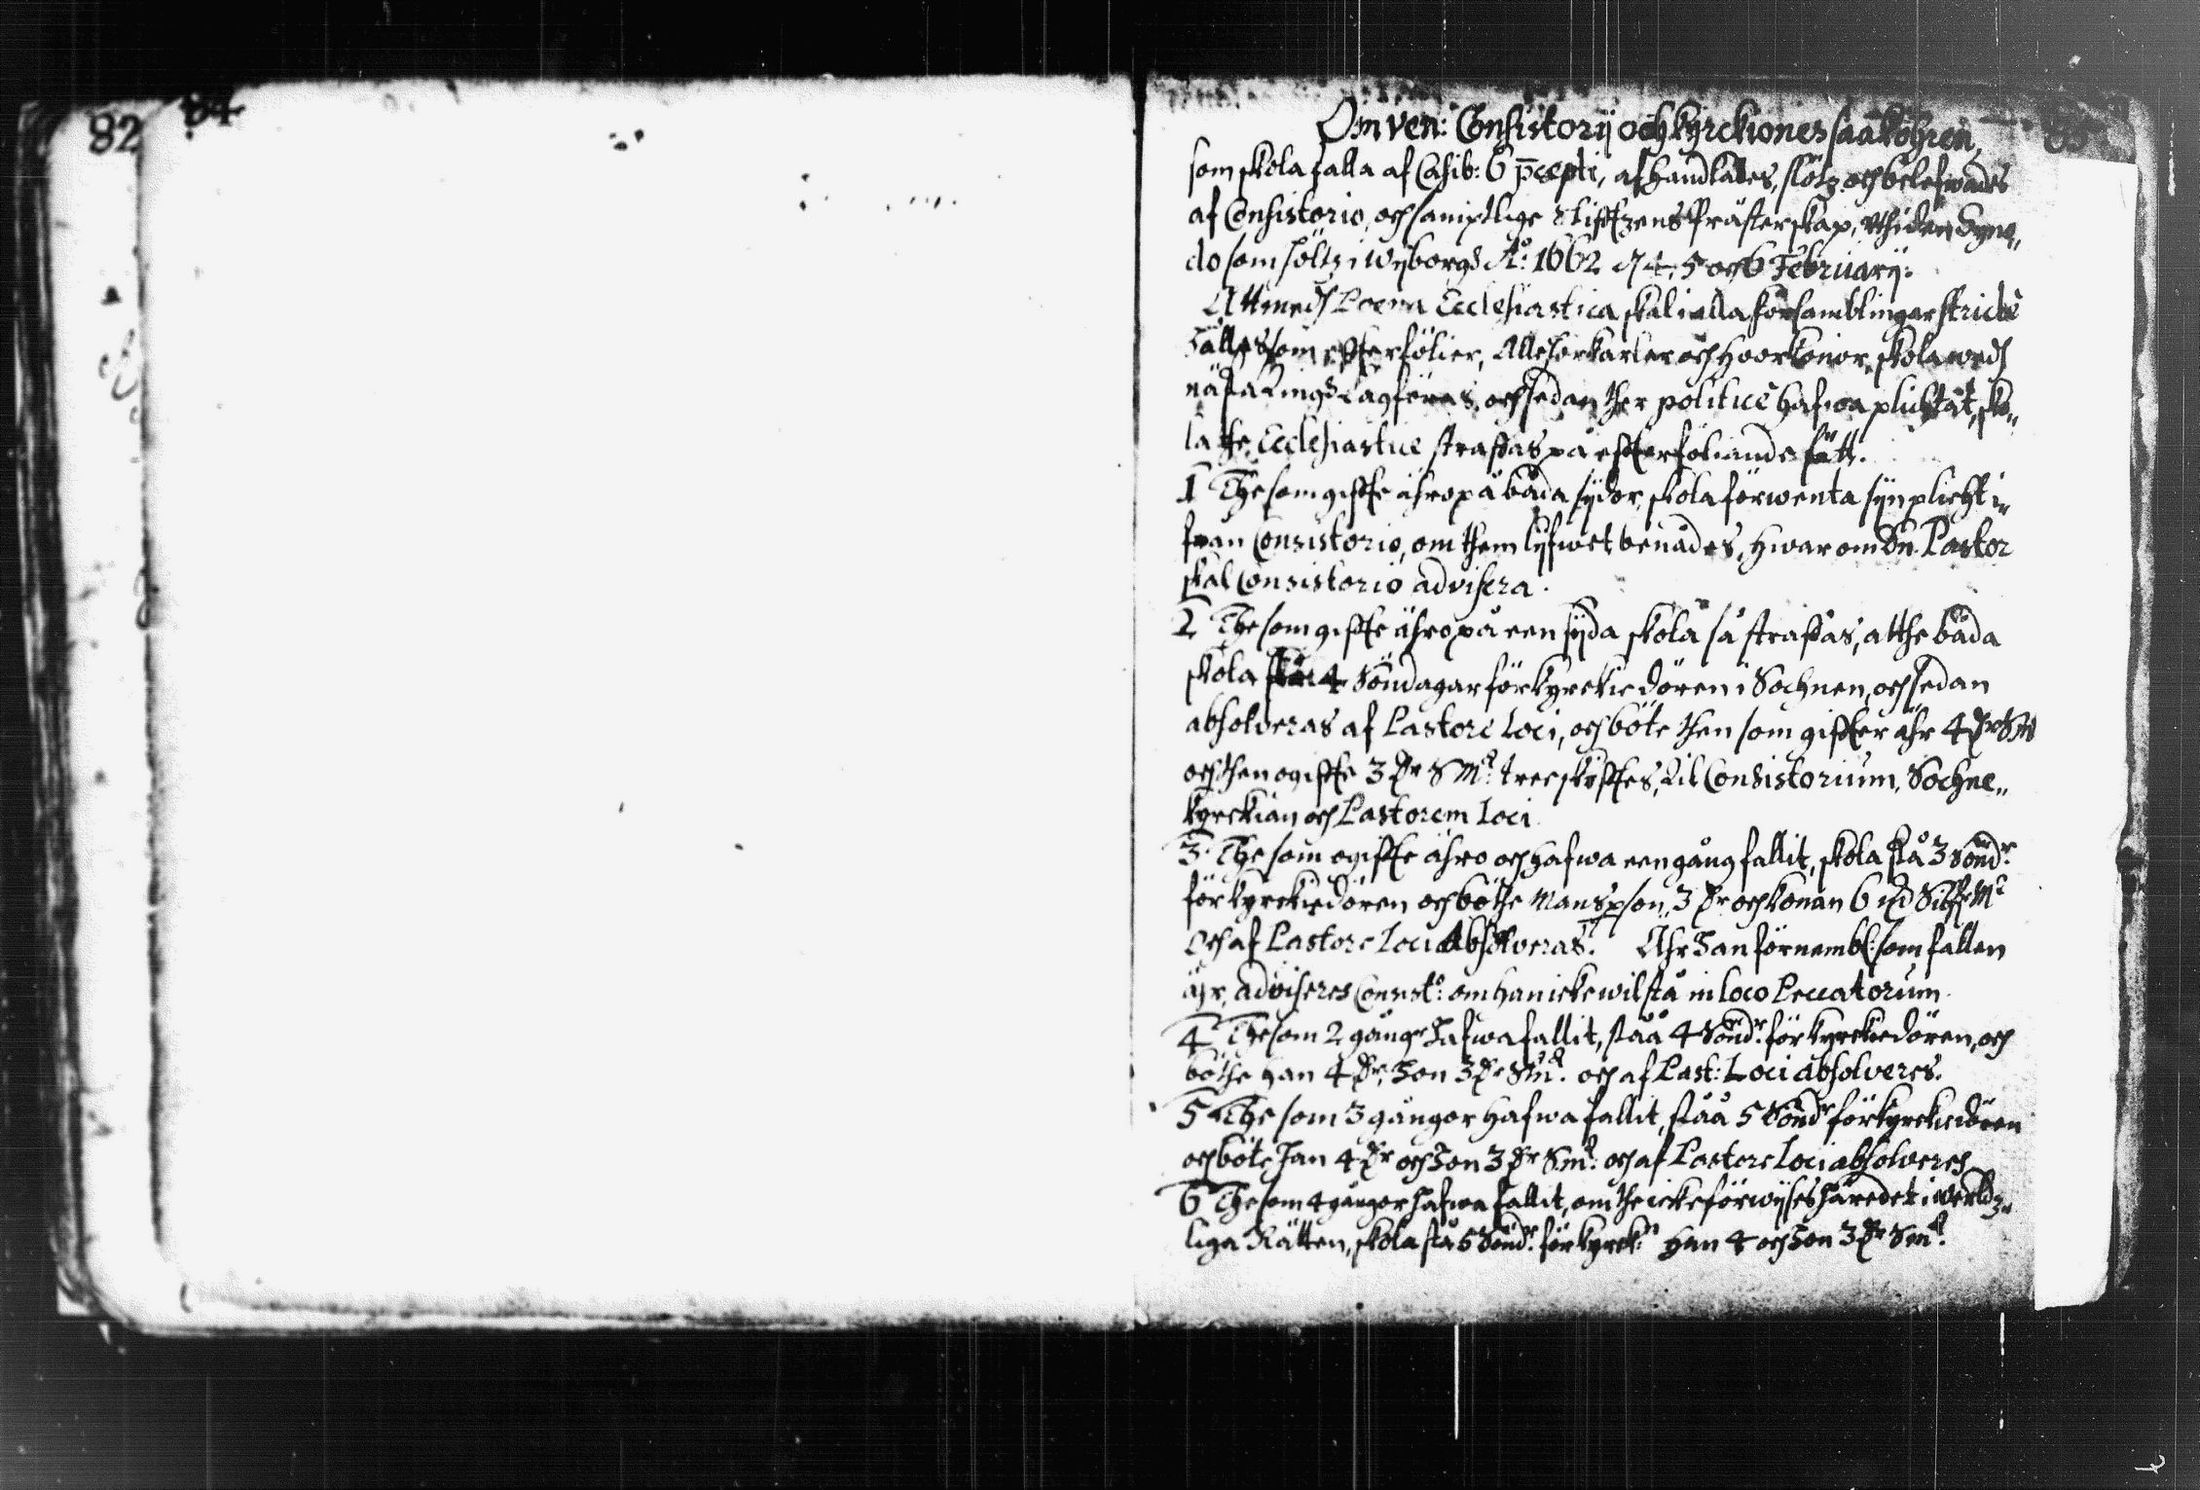 82
84
Om ven: Consistorij och kyrckiones saaköhren,
som skola falla af Casib: 6 p̄cepti, afhandlades, slötz och belefwades
af Consistorio, och samptlige Stifftzens Prästerskap, vthi den Syno„
do som höltz i Wijborg Aͦ: 1662 d 4, 5 och 6 Februarij.
Att medh Poena Ecclesiastica skal i alla församblingar stricte
hålles som effterfölier, Alle horkarlar och Hoorkonor, skola wedh
näste Ting Lagföras, och sedan ther politicè hafwa plichtat, sko„
la the Ecclesiasticè straffas på effterföliande sätt.
1 The som giffte ähro på båda sydor, skola förwenta syn plicht i„
från Consistorio, om them lyfwet benådes, hwar om Dn. Pastor
skal Consistorio advisera.
2 The som giffte ähro på een syda skola så straffas, at the båda
skola stå 4 Söndagar för kyrckie dören i Sochnen, och sedan
absolveras af Pastore Loci, och böte then som giffter ähr 4 Dr SM
och then ogiffte 3 Dr SMt: treeskifftes, til Consistorium, Sochne„
kyrckian och Pastorem Loci
3. The som ogiffte ähro och hafwa een gång fallit, skola stå 3 Söndr.
för kyrckiedören och böthe Mansp̱son, 3 Dr och konan 6 Sillf Mt
Och af Pastore Loci Absolveras. Ähr han förnembl: som fallen
ähr, adviseres Consistͦ: om han icke wil stå in loco Peccatorum.
4 The som 2 gångr hafwa fallit, ståå 4 Söndr. för kyrckiedören, och
böthe han 4 Dr, hon 3 Dr Smt. och af Past: Loci absolveres.
5 The som 3 gångor hafwa fallit, ståå 5 Söndr för kyrckiedören
och böte han 4 Dr och hon 3 Dr Smt: och af Pastore Loci absolveres
6 The som 4 gångor hafwa fallit, om the icke förwyses häredet i werldz„
liga Rätten, skola stå 5 Söndr. för kyrckn han 4 och hon 3 Dr Smt.